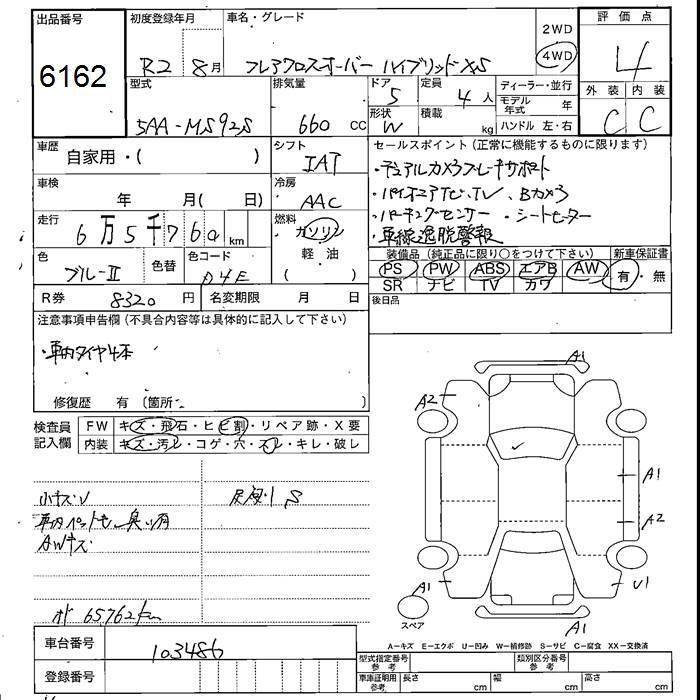 出品番号 初度登録年月 車名・グレード 2WD 評価点
6162 R2 8月 フレアクロスオーバー ハイブリッドXS 4WD 4
型式 排気量 ドア 定員 ディーラー・並行 外装 内装
5AA-MS92S 660 CC 5 4人 モデル年式 年 C C
形状 W 積載 kg ハンドル 左・右
車歴 自家用・( ) シフト IAT セールスポイント(正常に機能するものに限ります)
・デュアルカメラブレーキサポート
車検 年 月( 日) 冷房 AAC
・パイオニアナビ、TV、Bカメラ
・パーキングセンサー ・シートヒーター
走行 6万5千760km 燃料 ガソリン
・車線逸脱警報
軽油 ( )
色 ブルーⅡ 色替 色コード D4E
装備品(純正品に限り○をつけて下さい) 新車保証書
PS PW ABS エアB AW 有・無
SR ナビ TV カワ
R券 8320円 名変期限 月 日 後日品
注意事項申告欄(不具合内容等は具体的に記入して下さい)
・車内タイヤ4本
修復歴 有 〔箇所 〕
検査員記入欄 FW キズ・飛石・ヒビ割・リペア跡・X要
内装 キズ・汚レ・コゲ・穴・スレ・キレ・破レ
小キズU S
車内ペット毛、臭い有
AWキズ
オド 65762km
車台番号 103486
登録番号
A1
A2
A1
A2
A1 U1
スペア A1
A-キズ E-エクボ U-凹み W-補修跡 S-サビ C-腐食 XX-交換済
型式指定番号 参考 類別区分番号 参考
車庫証明用 参考 長さ cm 幅 cm 高さ cm